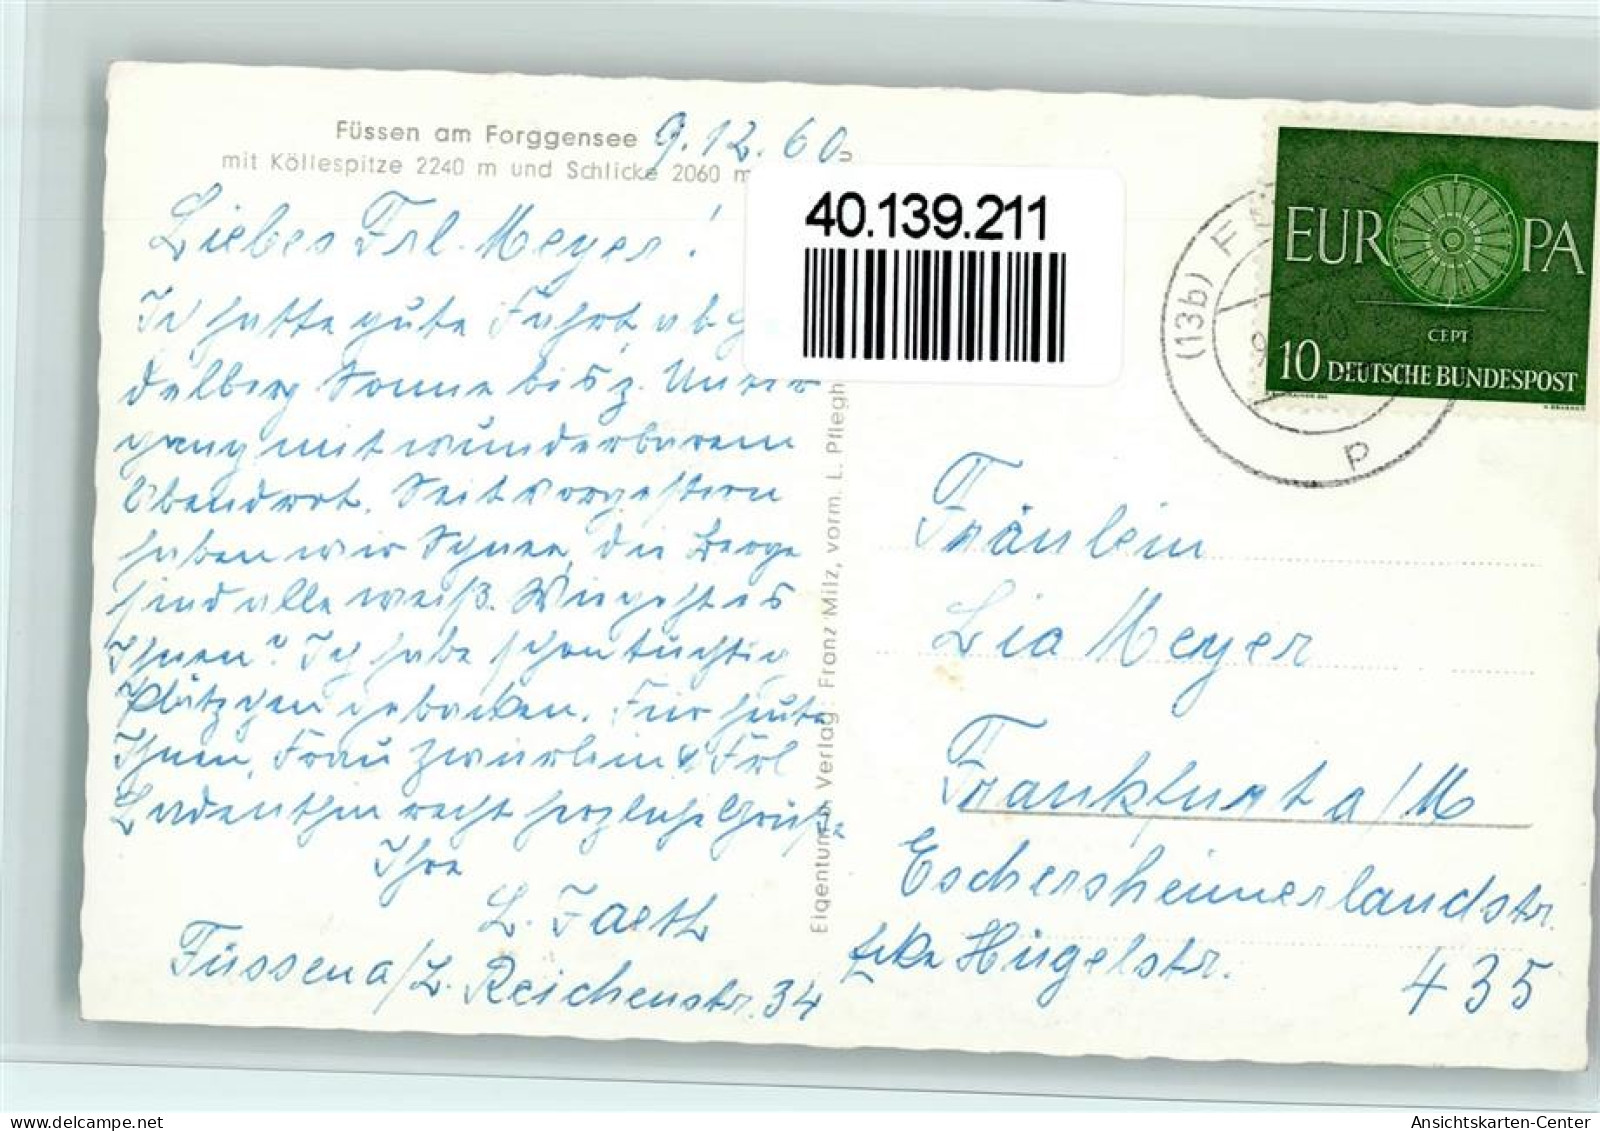 Füssen am Forggensee
9.12.60
mit Köllespitze 2240 m und Schlicke 2060 m
Liebes Frl. Meyer!
Ich hatte gute Fahrt, ab
delberg Sonne bis z. Unter
gang mit wunderbarem
Abendrot. Seit vorgestern
haben wir Schnee, die Berge
sind alle weiß. Wie geht es
Ihnen? Ich habe schon tüchtig
Plätzchen gebacken. Für heute
Ihnen, Frau Zwierlein & Frl
recht herzliche Grüße
Ihre
L. Faeth
Füssen a/L. Reichenstr. 34
Eigentum u. Verlag: Franz Milz, vorm. L. Pflegh
40.139.211
(13b) F
p
EUROPA
CEPT
10 DEUTSCHE BUNDESPOST
Fräulein
Lia Meyer
Frankfurt a/M
Eschersheimerlandstr.
Ecke Hügelstr. 435
Ansichtskarten-Center